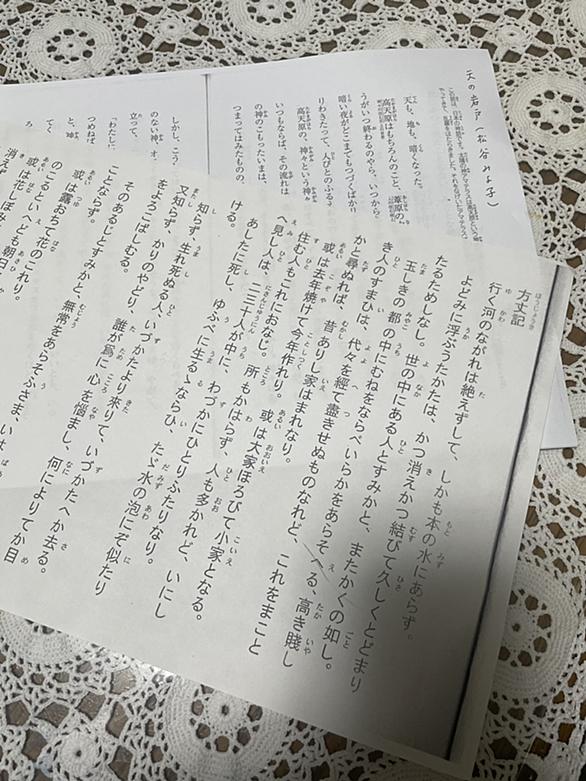 方丈記
行く河のながれは絶えずして、しかも本の水にあらず。
よどみに浮ぶうたかたは、かつ消えかつ結びて久しくとどまり
たるためしなし。世の中にある人とすみかと、またかくの如し。
玉しきの都の中にむねをならべいらかをあらそへる、高き賤し
き人のすまひは、代々を經て盡きせぬものなれど、これをまこと
かと尋ぬれば、昔ありし家はまれなり。
或は去年焼けて今年作れり。或は大家ほろびて小家となる。
住む人もこれにおなじ。所もかはらず、人も多かれど、いにし
へ見し人は、二三十人が中に、わづかにひとりふたりなり。
あしたに死し、ゆふべに生るゝならひ、たゞ水の泡にぞ似たり
ける。
知らず、生れ死ぬる人、いづかたより來りて、いづかたへか去る。
又知らず、かりのやどり、誰が爲に心を悩まし、何によりてか目
をよろこばしむる。
そのあるじとすみかと、無常をあらそふさま、いは
ことならず。
或は露おちて花のこれり。
のこるといへど
或は花はしぼみ
天の岩戸(松谷みよ子)
天も、地も、暗くなった。
高天原はもちろんのこと、葦原の
暗い夜がどこまでもつづくばかり
うがいつ終わるのやら、いつから
りわきたって、人びとのふるう
高天原の、神々という神
いつもならば、その流れは
の神のこもったいまは、
つまってはみたものの、
しかし、こう
のない神、オ
立って、
「わたし
つめねば
と、神
てく
ろ